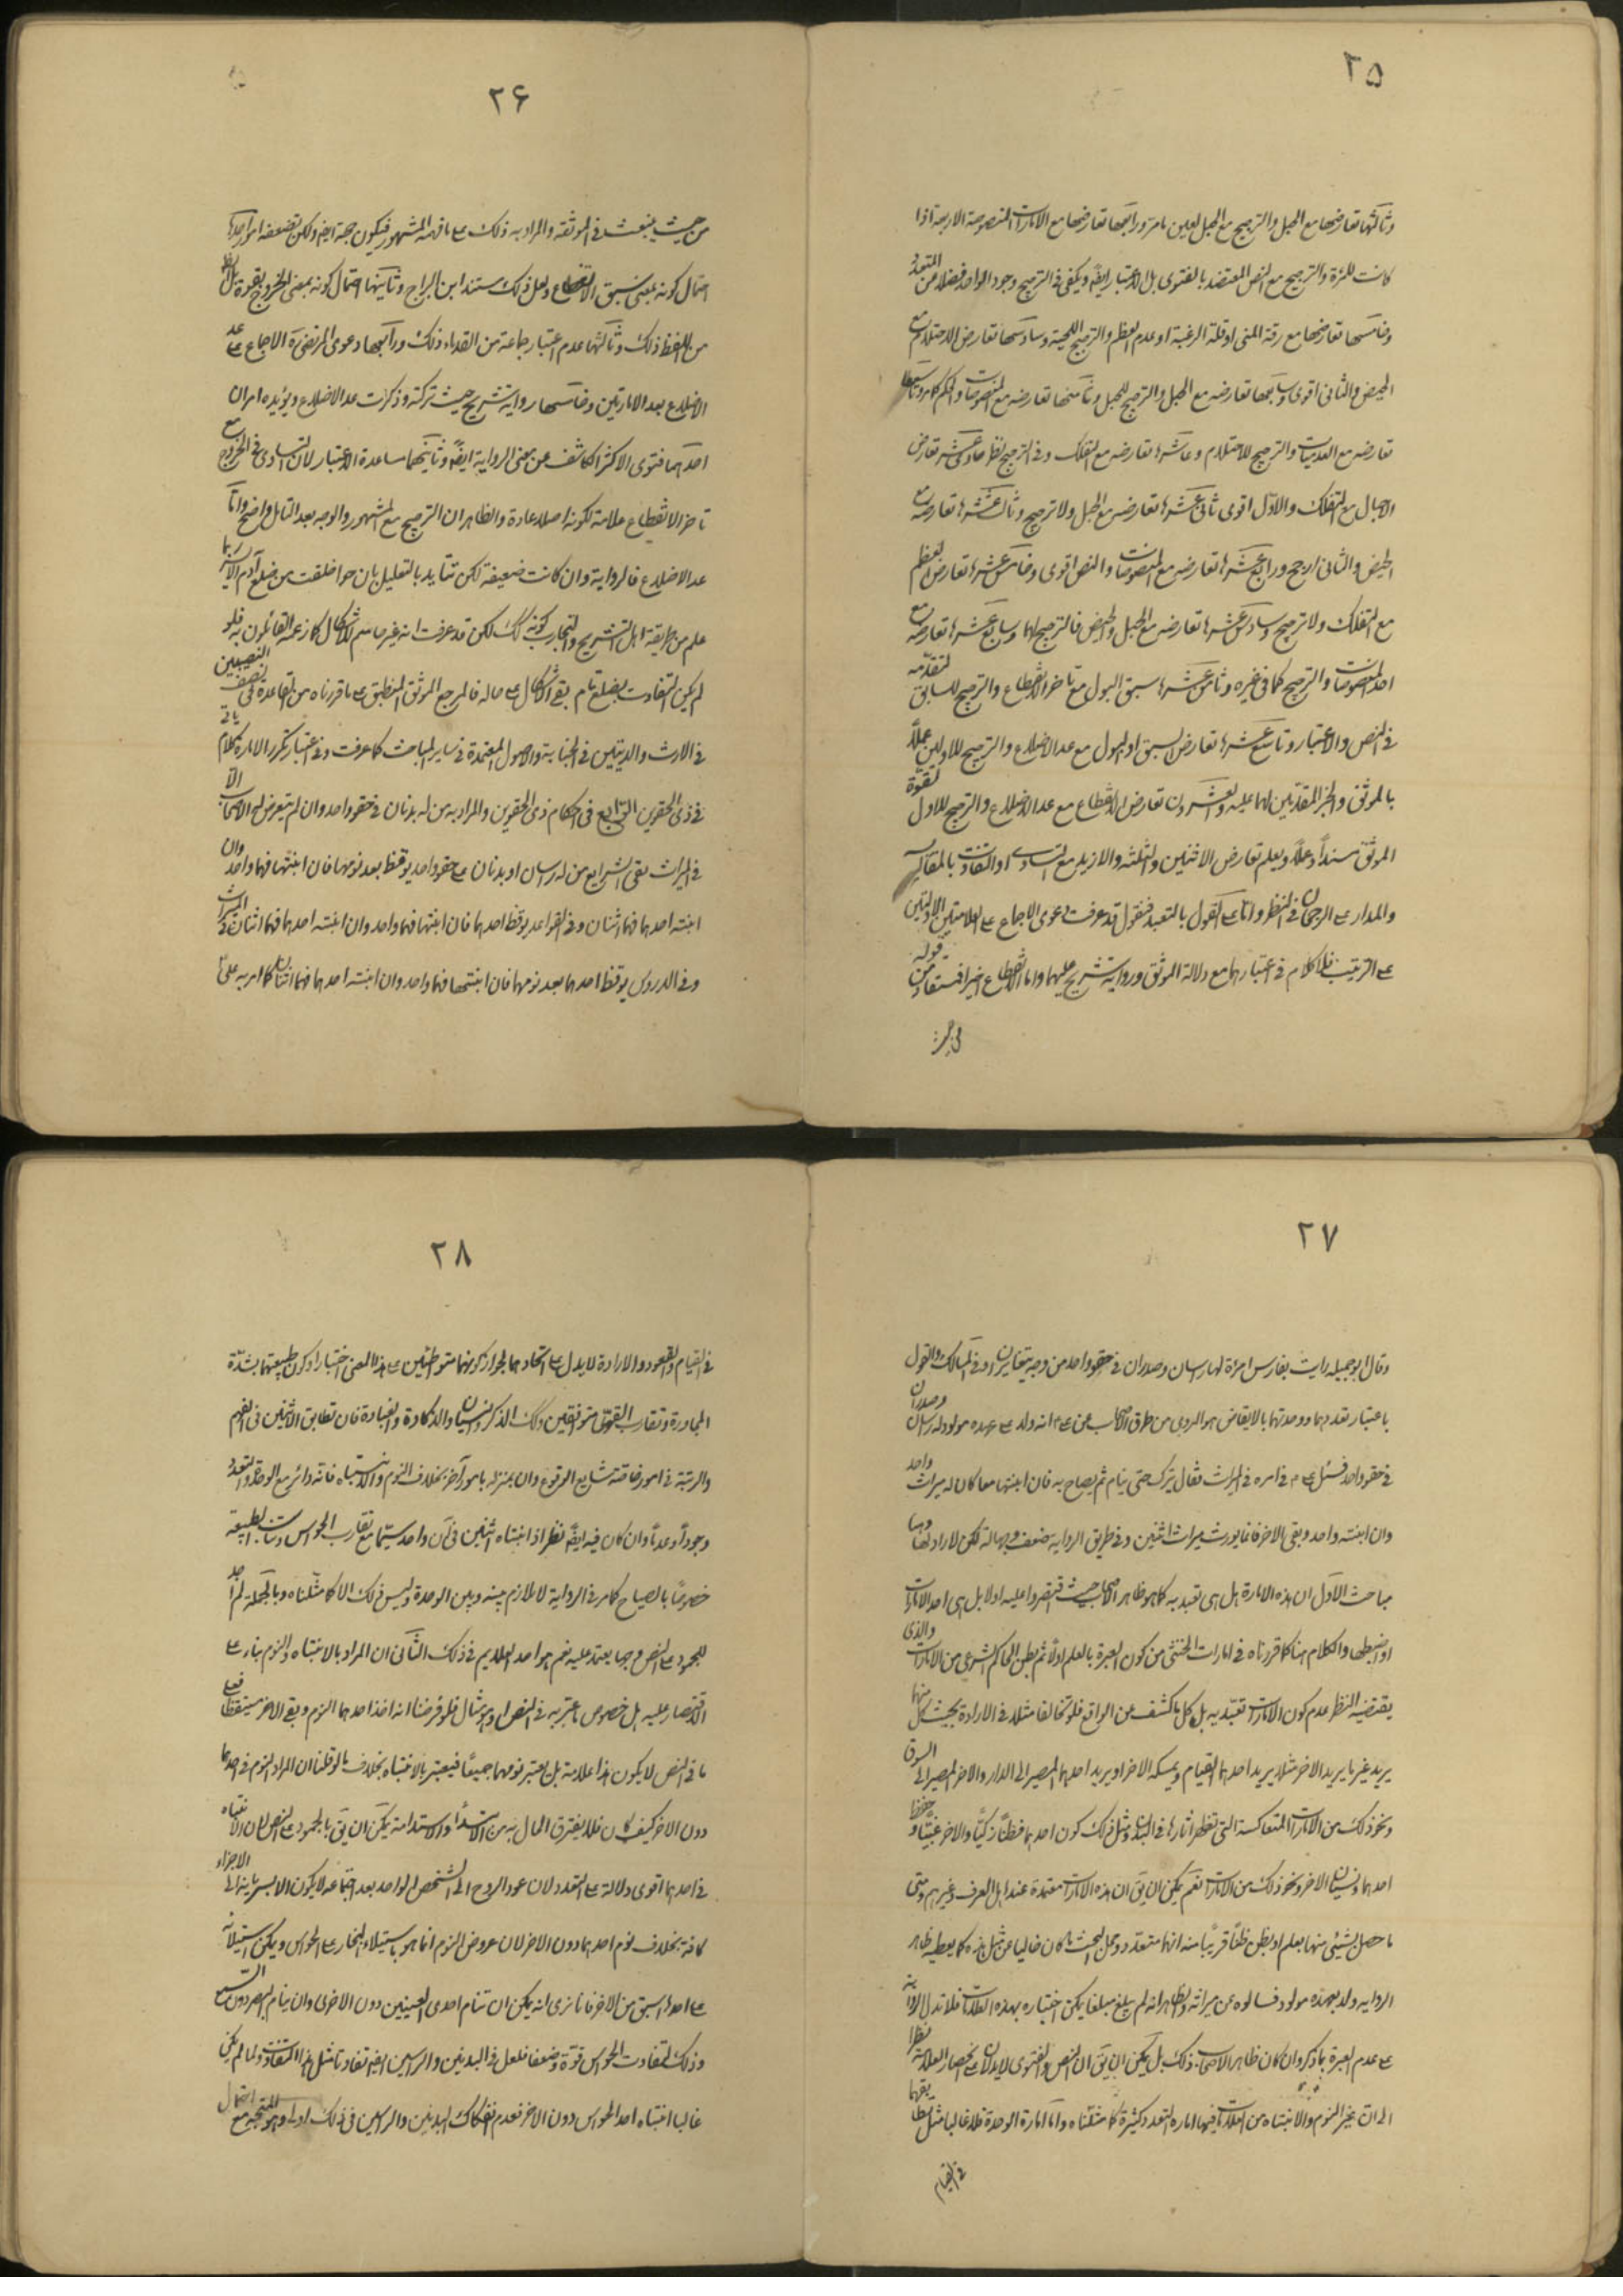 ٢٥
وثالثها تعارضها مع الحبل والترجيح مع الحبل لعين ما مر ورابعها تعارضها مع الامارات المنصوصة الاربعة اذا
كانت للمرئة والترجيح مع النص المعتضد بالفتوى بل الاعتبار ايضا ويكفى فى الترجيح وجود الواحد فضلا من المتعدد
وخامسها تعارضها مع رقة المنى او قلة الرغبة او عدم العظم والترجيح اللحية وسادسها تعارض الاحتلام مع
الحيض والثانى اقوى وسابعها تعارضه مع الحبل والترجيح للحبل وثامنها تعارضه مع المنصوصات والحكم كما مر وتاسعها
تعارضه مع العدميات والترجيح للاحتلام وعاشرها تعارضه مع التفلك وفى الترجيح نظر حاديعشرها تعارض
الاحبال مع التفلك والاول اقوى ثانى عشرها تعارضه مع الحبل ولا ترجيح وثالث عشرها تعارضه مع
الحيض والثانى ارجح ورابع عشرها تعارضه مع المنصوصات والنص اقوى وخامس عشرها تعارض العظم
مع التفلك ولا ترجيح وسادس عشرها تعارضه مع الحبل والحيض فالترجيح لهما وسابع عشرها تعارضه مع
احد المنصوصات والترجيح كما فى غيره وثامن عشرها سبق البول مع تاخر الانقطاع والترجيح للسابق لتقدمه
فى النص والاعتبار وتاسع عشرها تعارض السبق او البول مع عد الاضلاع والترجيح للاولين عملا
بالموثق والخبر المقدمين لهما عليه والعشرون تعارض الانقطاع مع عد الاضلاع والترجيح للاول لقوة
الموثق سندا وعملا ويعلم تعارض الاثنين والثلثة والازيد مع التساوى او التفاوت بالمقايسة
والمدار على الرجحان فى النظر واما على القول بالتعبد فنقول قد عرفت دعوى الاجماع على العلامتين الاولتين
على الترتيب فلا كلام فى اعتبارهما مع دلالة الموثق ورواية شريح عليهما واما الانقطاع اخيرا فمستفاد من قوله
٢۶
من حيث ينبعث فى الموثقة والمراد به ذلك على ما فهمه المشهور فيكون حجة ايضا ولكن تضعفه امور احدها
احتمال كونه بمعنى سبق الانقطاع ولعل ذلك مستند ابن البراج وثانيها احتمال كونه بمعنى الخروج بقوة بل الظ
من اللفظ ذلك وثالثها عدم اعتبار جماعة من القدماء ذلك ورابعها دعوى المرتضى ره الاجماع على عد
الاضلاع بعد الامارتين وخامسها رواية شريح حيث تركته وذكرت عد الاضلاع ويؤيده امران
احدهما فتوى الاكثر الكاشف عن معنى الرواية ايضا وثانيهما مساعدة الاعتبار لان التساوى فى الخروج مع
تاخر الانقطاع علامة لكونه اصلا عادة والظاهر ان الترجيح مع المشهور والوجه بعد التامل واضح واما
عد الاضلاع فالرواية وان كانت ضعيفة لكن تتايد بالتعليل بان حوا خلقت من ضلع آدم الايسر بما
علم من طريقة اهل التشريح والتجارب كونه كك لكن قد عرفت انه غير حاسم للاشكال كما زعمه القائلون به فلو
لم يكن التفاوت بضلع تام بقى الاشكال على حاله فالمرجع الموثق المنطبق على ما قررناه من القاعدة فى نصف النصيبين
فى الارث والديتين فى الجناية والاصول المعتمدة فى ساير المباحث كما عرفت وفى اعتبار تكرر الامارة كلام ياتى
فى ذى الحقوين الباب الرابع فى احكام ذى الحقوين والمراد به من له بدنان فى حقو واحد وان لم يتعرض له الاصحاب الا
فى الميراث ففى الشرايع من له راسان او بدنان على حقو واحد يوقظ بعد نومهما فان انتبها فهما واحد وان
انتبه احدهما فهما اثنان وفى القواعد يوقظ احدهما فان انتبها فهما واحد وان انتبه احدهما فهما اثنان فى الميراث
وفى الدروس يوقظ احدهما بعد نومهما فان انتبها فهما واحد وان انتبه احدهما فهما اثنان كما امر به على ع
٢٧
وقال ابو جميلة رايت بفارس امرئة لها راسان وصدران فى حقو واحد متزوجة تغاير هذه وفى المسالك والقول
باعتبار تعددهما ووحدتهما بالايقاض هو المروى من طرق الاصحاب عن على ع انه ولد على عهده مولود له راسان وصدران
فى حقو واحد فسئل على ع فى امره فى الميراث فقال يترك حتى ينام ثم يصاح به فان انتبها معا كان له ميراث واحد
وان انتبه واحد وبقى الاخر فانما يورث ميراث اثنين وفى طريق الرواية ضعف وجهالة لكن لا راد لها وهنا
مباحث الاول ان هذه الامارة هل هى تعبدية كما هو ظاهر الاصحاب حيث اقتصروا عليه او لا بل هى احد الامارات
او اضبطها والكلام هنا كما قررناه فى امارات الخنثى من كون العبرة بالعلم اولا ثم بظن الحاكم الشرعى من الامارات والذى
يقتضيه النظر عدم كون الامارات تعبدية بل كل ما كشف عن الواقع فلو تخالفا مثلا فى الارادة بحيث كل منهما
يريد غير ما يريد الاخر مثلا يريد احدهما القيام ويمسكه الاخر او يريد احدهما المصير الى الدار والاخر المصير الى السوق
ونحو ذلك من الامارات المتعاكسة التى تظهر اثارها فى البدن ومثل ذلك كون احدهما فطنا زكيا والاخر غبيا وحفظ
احدهما ونسيان الاخر ونحو ذلك من الامارات نعم يمكن ان يق ان هذه الامارات معتمدة عند اهل العرف وغيرهم ومتى
ما حصل بشيئى منها يعلم او يظن ظنا قريبا منه انهما متعدد ومحل البحث ما كان خاليا عن مثل هذه كما يعطيه ظاهر
الرواية ولد بعهده مولود فسالوه عن ميراثه والظاهر انه لم يبلغ مبلغا يمكن اختباره بهذه العلامات فلا تدل الرواية
على عدم العبرة بما ذكر وان كان ظاهر الاصحاب ذلك بل يمكن ان يق ان النص والفتوى لا يدلان على انحصار العلامة نظرا
الى ان غير النوم والانتباه من العلامات فيهما امارة التعدد كثيرة كما مثلناه واما امارة الوحدة فلا غالبا مثل بقائهما
فى القيام
٢٨
فى القيام والقعود والارادة لا يدل على اتحادهما لجواز كونهما متواطئين على هذا المعنى اختيارا وكون طبيعتهما بشدة
المجاورة وتقارب القوى متوافقين وكك الذكر والنسيان والذكاوة والغباوة فان تطابق الاثنين فى الفهم
والرتبة فى امور خاصة شايع الوقوع وان يميز له بامور آخر بخلاف النوم والانتباه فانه دائر مع الوحدة والتعدد
وجودا وعدما وان كان فيه ايضا نظر اذ انتباه اثنين فى آن واحد سيما مع تقارب الحواس وتناسب الطبيعة
خصوصا بالصياح كما مر فى الرواية لا تلازم بينه وبين الوحدة وليس ذلك الا كما مثلناه وبالجملة لم اجد
للجمود على النص وجها يعتمد عليه نعم هو احد العلايم فى ذلك الثانى ان المراد بالانتباه والنوم بناء على
الاقتصار عليه هل خصوص ما عبر به فى النص او هو مثال فلو فرضنا انه اخذ احدهما النوم وبقى الاخر مستيقظا فعلى
ما فى النص لا يكون هذا علامة بل يعتبر نومهما جميعا فيعتبر بالانتباه بخلاف ما لو قلنا ان المراد النوم فى احدهما
دون الاخر كيف كان فلا يفترق الحال بين الابتداء والاستدامة يمكن ان يق بالجمود على النص لان الانتباه
فى احدهما اقوى دلالة على التعدد لان عود الروح الى الشخص الواحد بعد اجتماعه لا يكون الا بسريانه الى الاجزاء
كافة بخلاف نوم احدهما دون الاخر لان عروض النوم انما هو باستيلاء البخار على الحواس ويمكن استيلائه
على احدها اسبق من الاخر فانا نرى انه يمكن ان تنام احدى العينين دون الاخرى وان ينام البصر دون السمع
وذلك لتفاوت الحواس قوة وضعفا فلعل فى البدنين والراسين ايضا تفاوتا مثل هذا التفاوت ولما لم يكن
غالبا انتباه احد الحواس دون الاخر فعدم انفكاك البدنين والراسين فى ذلك اولى والمتجه مع احتمال